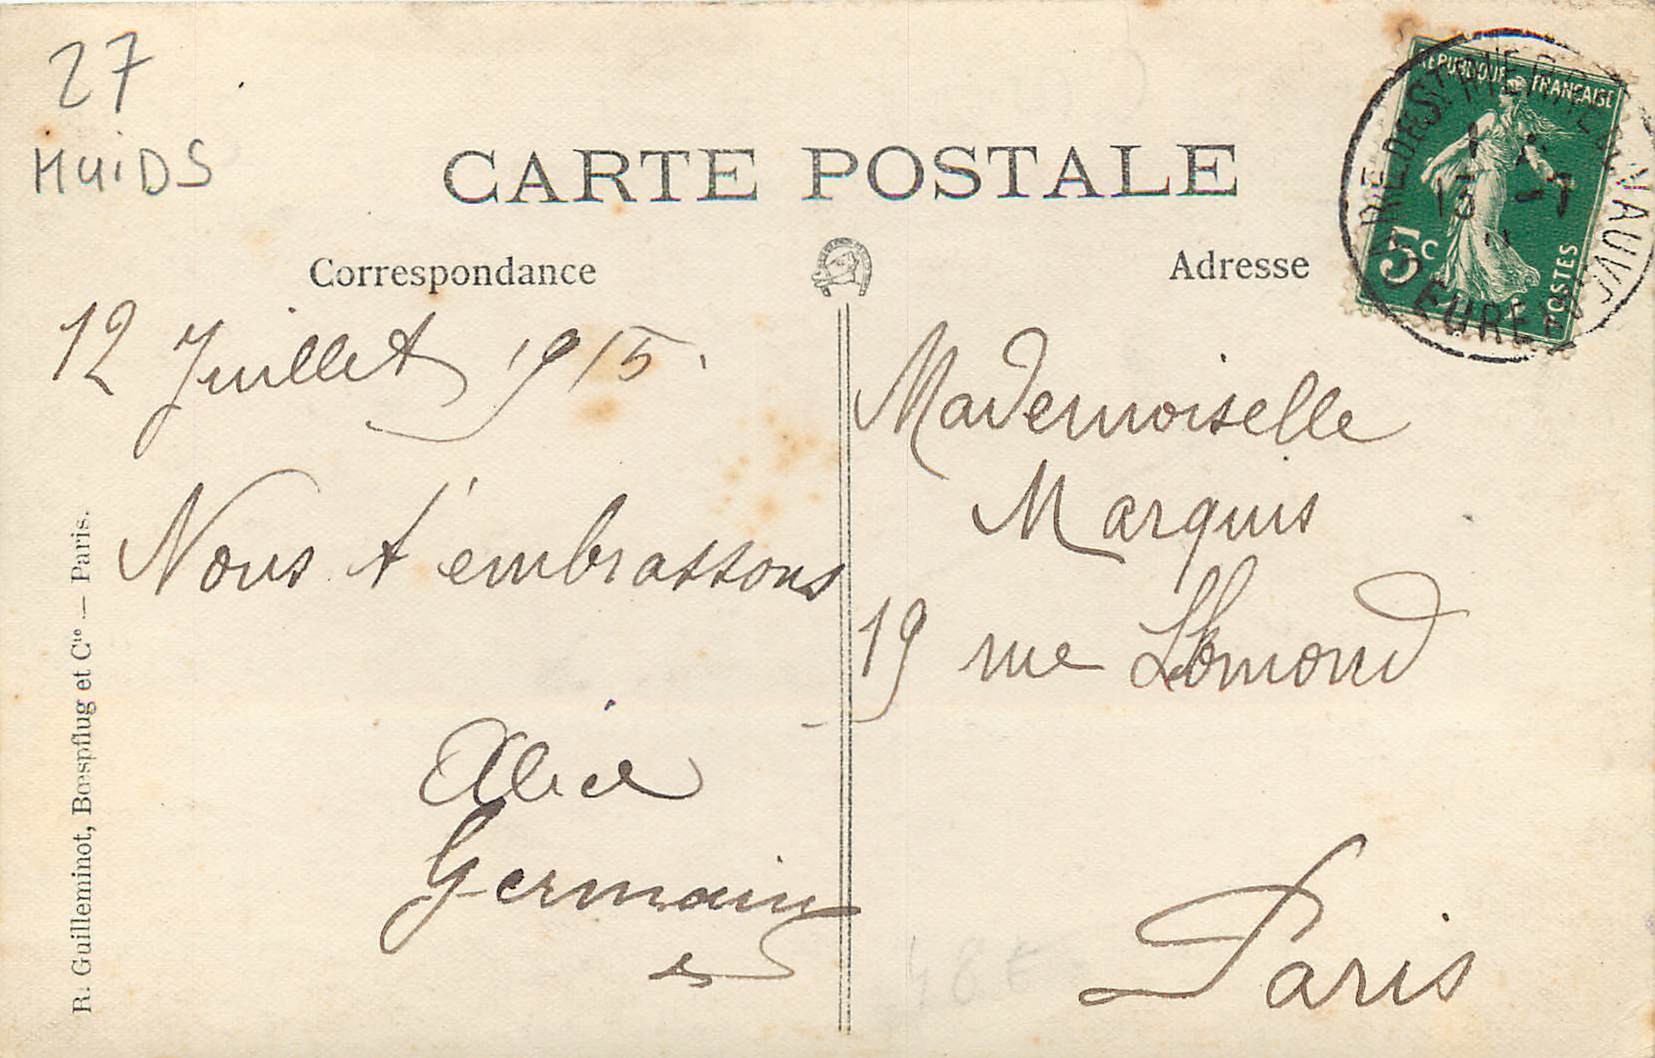 27
MUIDS
CARTE POSTALE
Correspondance
Adresse
RÉPUBLIQUE FRANÇAISE
5c
POSTES
EURE
12 Juillet 1915.
Nous t'embrassons
Alice
Germain
es
Mademoiselle
Marquis
19 rue Lhomond
Paris
48€
R. Guilleminot, Bœspflug et Cie — Paris.